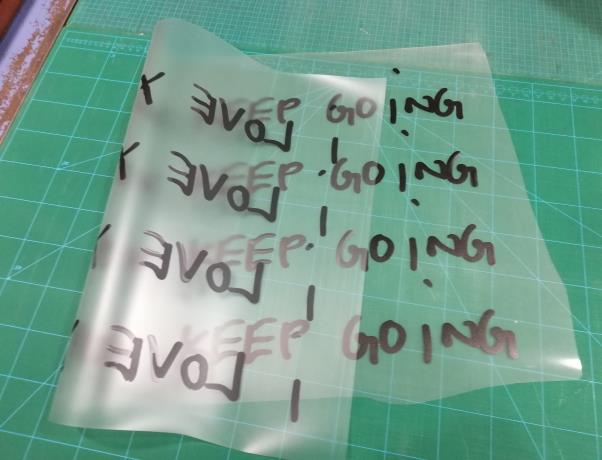 KEEP GOING
I LOVE
KEEP GOING
I LOVE
KEEP GOING
I LOVE
KEEP GOING
I LOVE